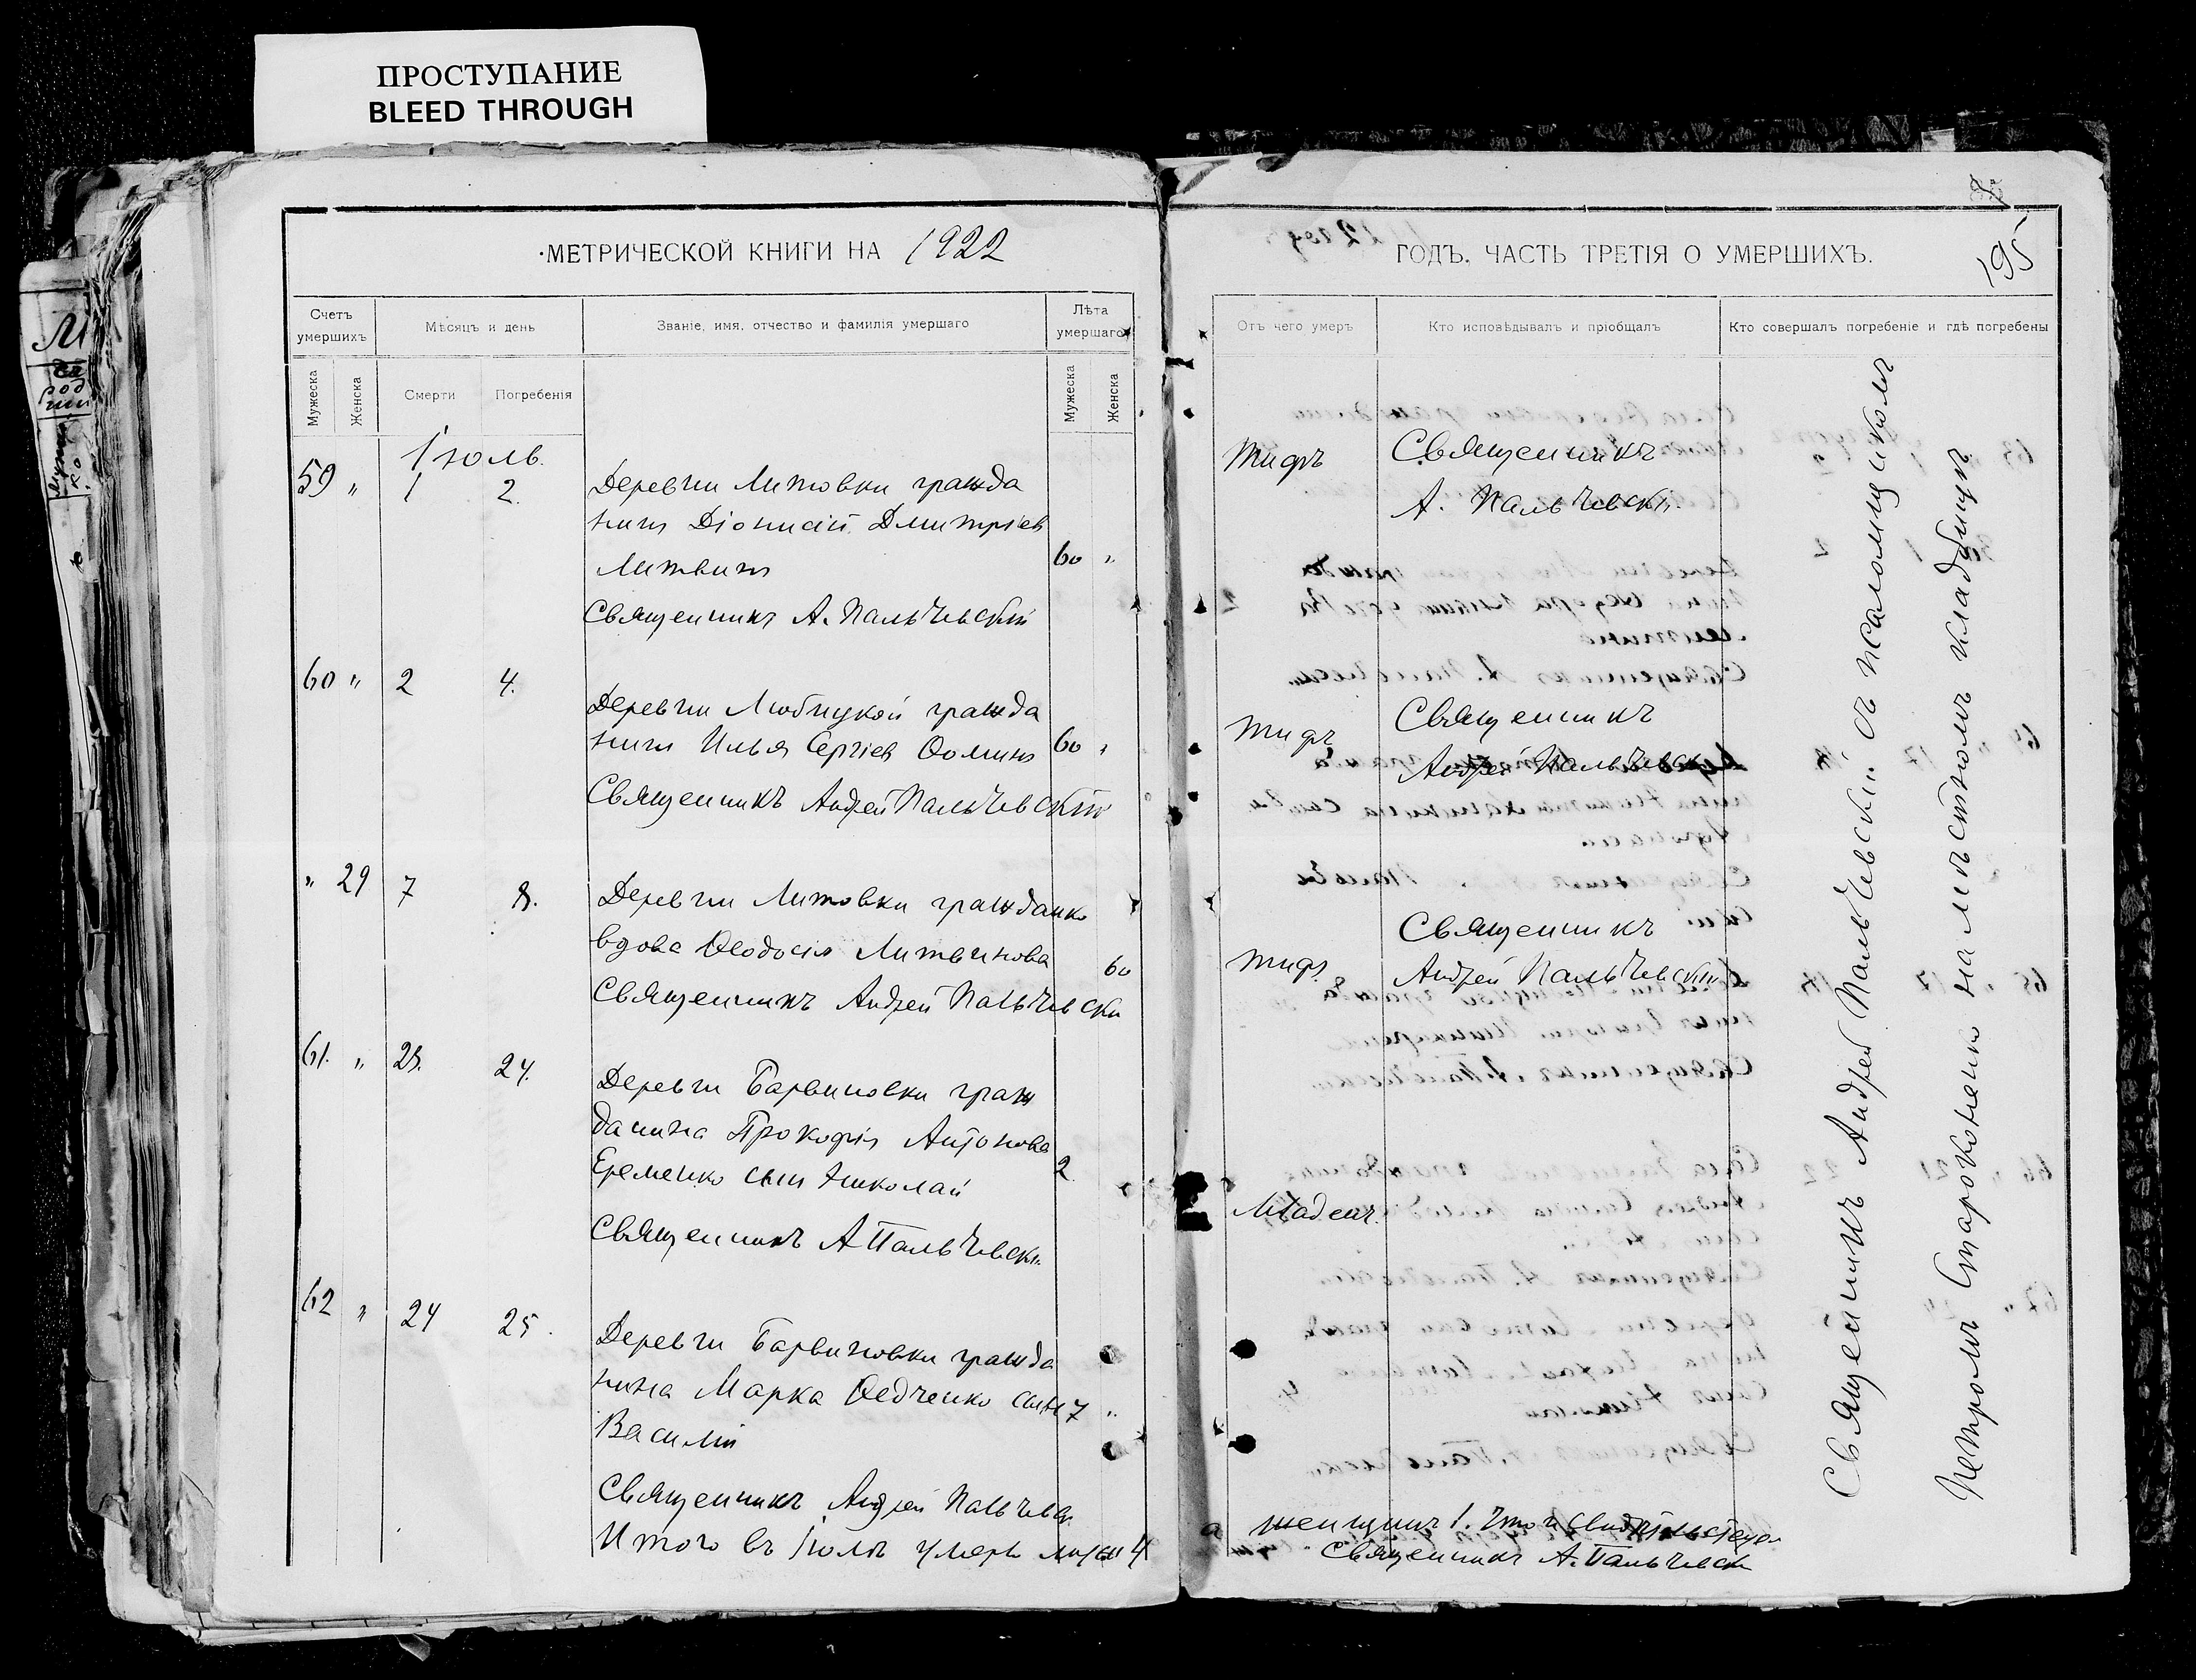 ПРОСТУПАНИЕ
BLEED THROUGH
МЕТРИЧЕСКОЙ КНИГИ НА 1922
Счетъ умершихъ
Мѣсяцъ и день
Званіе, имя, отчество и фамилія умершаго
Лѣта умершаго
Мужеска
Женска
Смерти
Погребенія
Мужеска
Женска
Іюль.
59 " 1 2.
Деревни Литовки гражда
нинъ Діонисій Дмитріевъ
Литвинъ
60 "
Священникъ А. Пальчевскій
60 " 2 4.
Деревни Любицкой гражда
нинъ Илья Сергіевъ Ѳоминъ
60 "
Священникъ Андрей Пальчевскій
" 29 7 8.
Деревни Литовки гражданка
вдова Ѳеодосія Литвинова
60
Священникъ Андрей Пальчевскі
61. " 23. 24.
Деревни Барвиновки граж
данина Прокофія Антонова
Еременко сынъ Николай
2
Священникъ А Пальчевскі
62 " 24 25.
Деревни Барвиновки гражда
нина Марка Ѳедченко сынъ
7 "
Василій
Священникъ Андрей Пальчевск
Итого въ Іюлѣ умерло мужчин 4
ГОДЪ. ЧАСТЬ ТРЕТІЯ О УМЕРШИХЪ.
195
Отъ чего умеръ
Кто исповѣдывалъ и пріобщалъ
Кто совершалъ погребеніе и гдѣ погребены
тифъ
Священникъ
А. Пальчевскі
тифъ
Священникъ
Андрей Пальчевскі
тифъ
Священникъ
Андрей Пальчевскій
Младенч.
Священникъ Андрей Пальчевскій съ псаломщикомъ
Петромъ Старокожко на мѣстномъ кладбищѣ
а женщинъ 1. Что и свидѣтельствуем
Священникъ А. Пальчевск